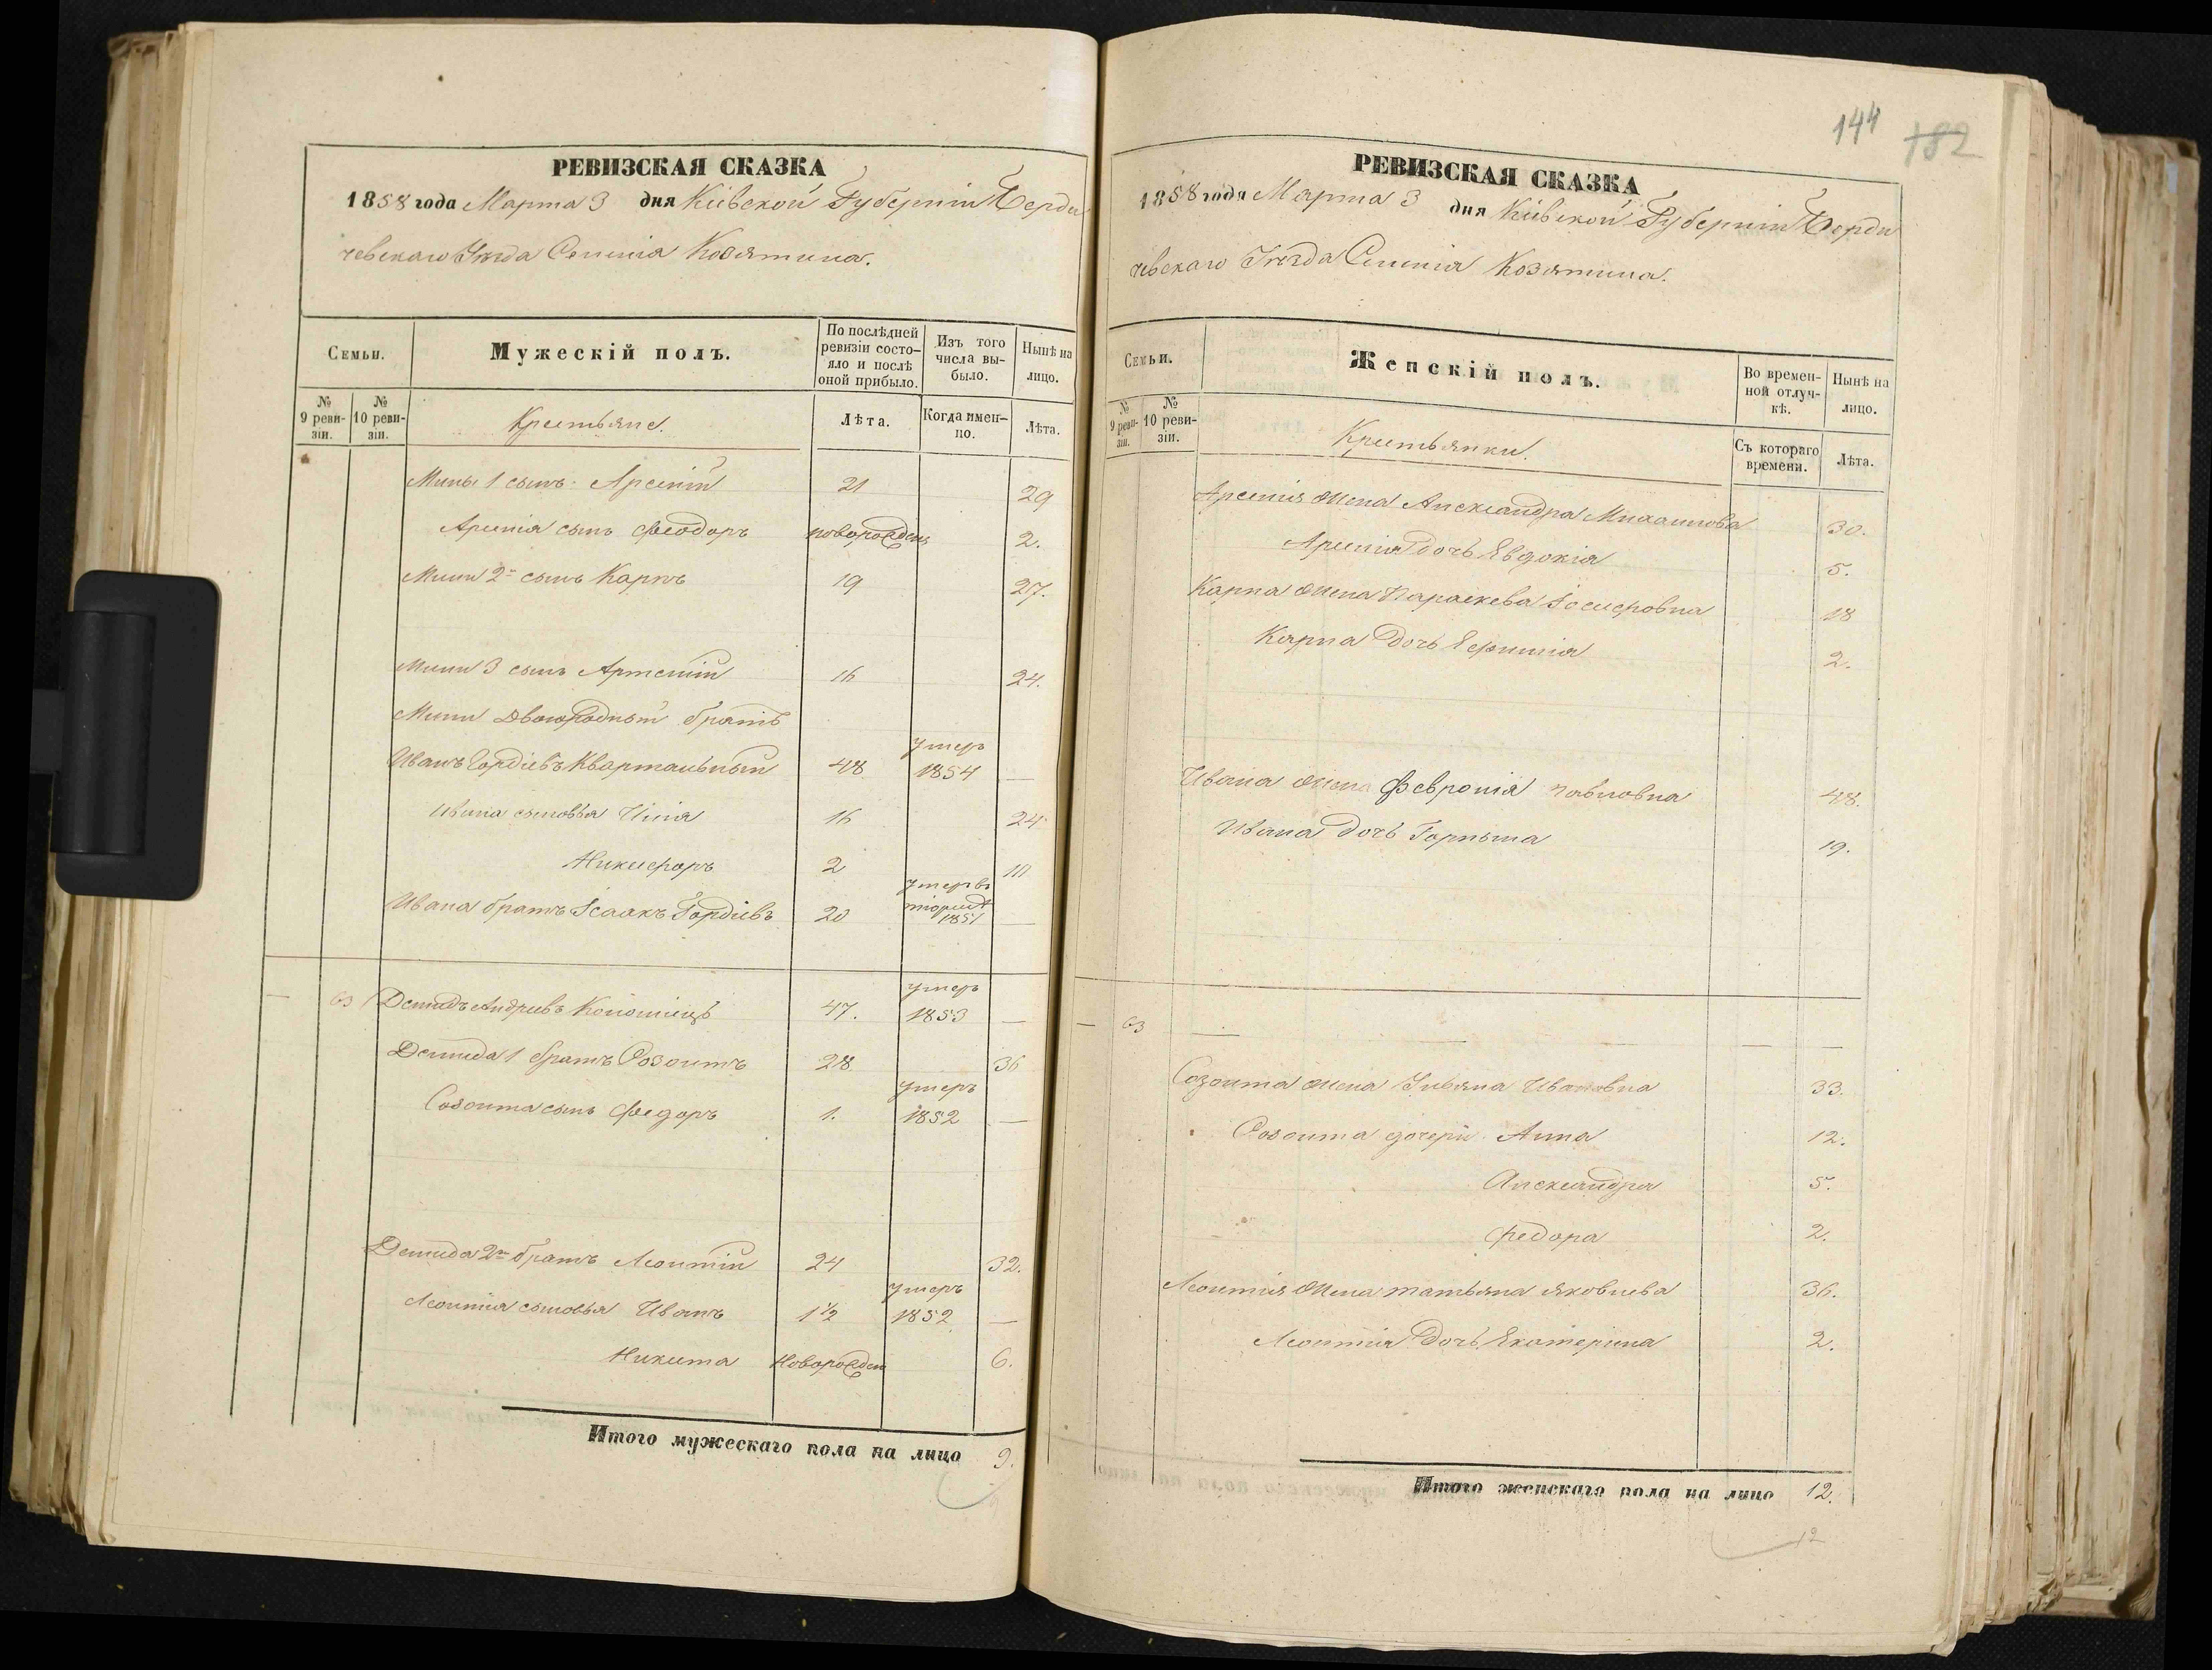 РЕВИЗСКАЯ СКАЗКА
1858 года Марта 3 дня Кіевской Губерніи Берди
чевскаго Уѣзда Селенія Козятина.
Семьи.
Мужескій полъ.
По послѣдней ревизіи состо-
яло и послѣ
оной прибыло.
Изъ того
числа вы-
было.
Нынѣ на
лицо.
№ 9 реви-
зіи.
№ 10 реви-
зіи.
Крестьяне.
Лѣта.
Когда имен-
но.
Лѣта.
Мины 1 сынъ Арсеній 21 29
Арсенія сынъ Феодоръ новорожден 2.
Мины 2й сынъ Карпъ 19 27.
Мины 3 сынъ Артемій 16 24.
Мины двоюродный братъ
Иванъ Гордіевъ Квартальный 48 умеръ 1854 —
Ивана сыновья Илія 16 24
Никифоръ 2 10
Ивана братъ Ісаакъ Гордіевъ 20 умеръ въ 1851 —
— 63 Демидъ Андреевъ Коломіецъ 47. умеръ 1853 —
Демида 1 братъ Созонтъ 28 36
Созонта сынъ Федоръ 1. умеръ 1852 —
Демида 2й братъ Леонтій 24 32.
Леонтія сыновья Иванъ 1½ умеръ 1852 —
Никита Новорожден 6.
Итого мужескаго пола на лицо 9.
144 182
РЕВИЗСКАЯ СКАЗКА
1858 года Марта 3 дня Кіевской Губерніи Берди
чевскаго Уѣзда Селенія Козятина.
Семьи.
Женскій полъ.
Во времен-
ной отлуч-
кѣ.
Нынѣ на
лицо.
№ 9 реви-
зіи.
№ 10 реви-
зіи.
Крестьянки.
Съ котораго
времени.
Лѣта.
Арсенія жена Александра Михаилова 30.
Арсенія дочь Евдокія 5.
Карпа жена Параскева Іосифовна 18
Карпа дочь Ефимія 2.
Ивана жена Февронія Павловна 48.
Ивана дочь Горпына 19.
— 63 — — — —
Созонта жена Ульяна Ивановна 33.
Созонта дочери Анна 12.
Александра 5.
Федора 2.
Леонтія жена Татьяна Яковлева 36.
Леонтія дочь Екатерина 2.
Итого женскаго пола на лицо 12.
12